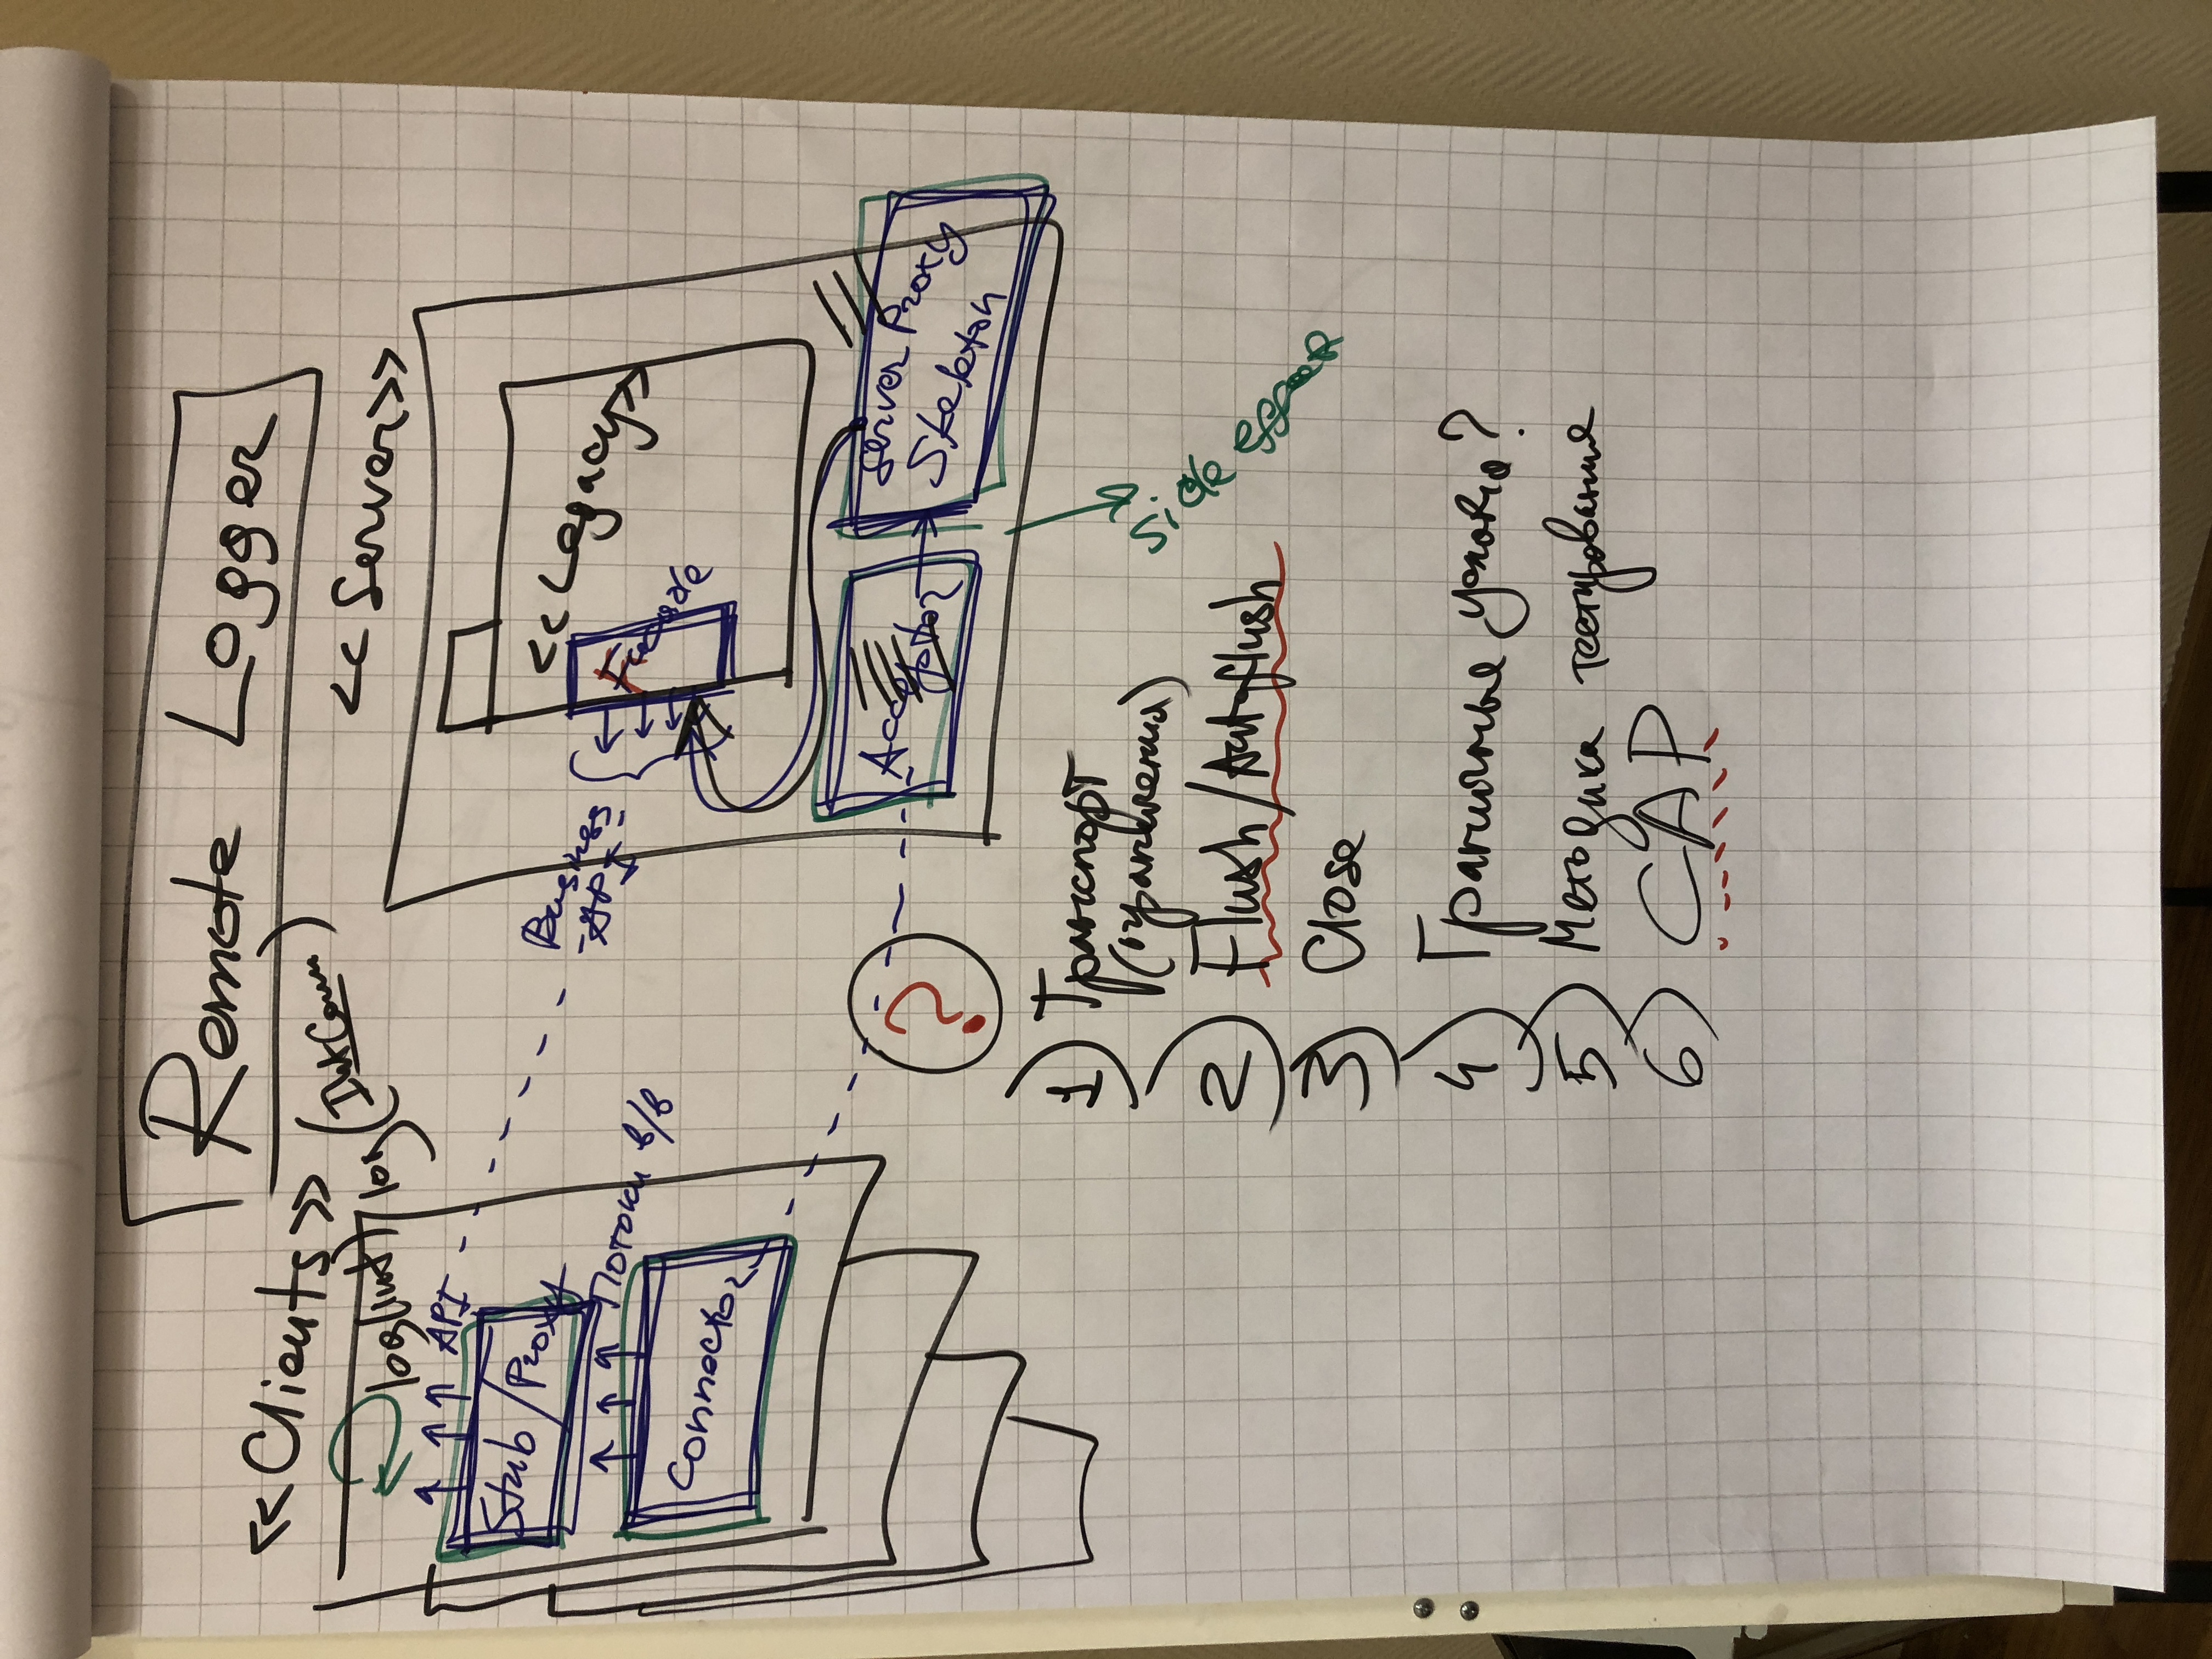 Remote Logger
<<Clients>>
log(int) log(IntComm)
API
Stub / Proxy
Потоки в/в
Connector
<<Server>>
<<Legacy>>
Business
API
Facade
Acceptor
Server Proxy
Skeleton
?
side effect
1) Транспорт
(ограничения)
2) Flush/Autoflush
3) Close
4) Граничные условия?
5) Методика тестирования
6) CAP